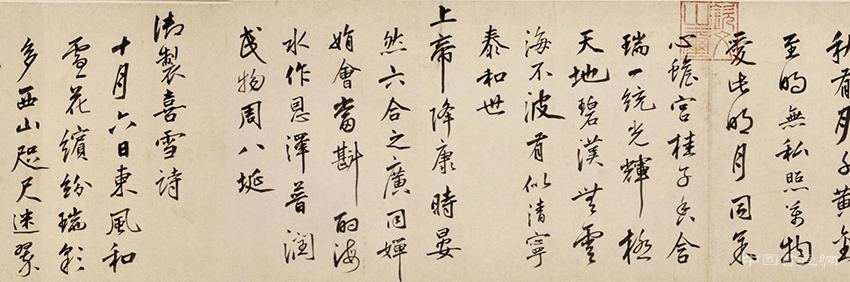 有月子黄金
至明無私照萬物
愛此明月同
心蟾宮桂子含
瑞一統光輝極
天地碧漢無雲
海不波有似清寧
泰和世
上帝降康時晏
然六合之廣同嬋
娟會當斟酌海
水作恩澤普潤
民物周八埏
御製喜雪詩
十月六日東風和
雪花繽紛瑞彩
多西山咫尺迷翠